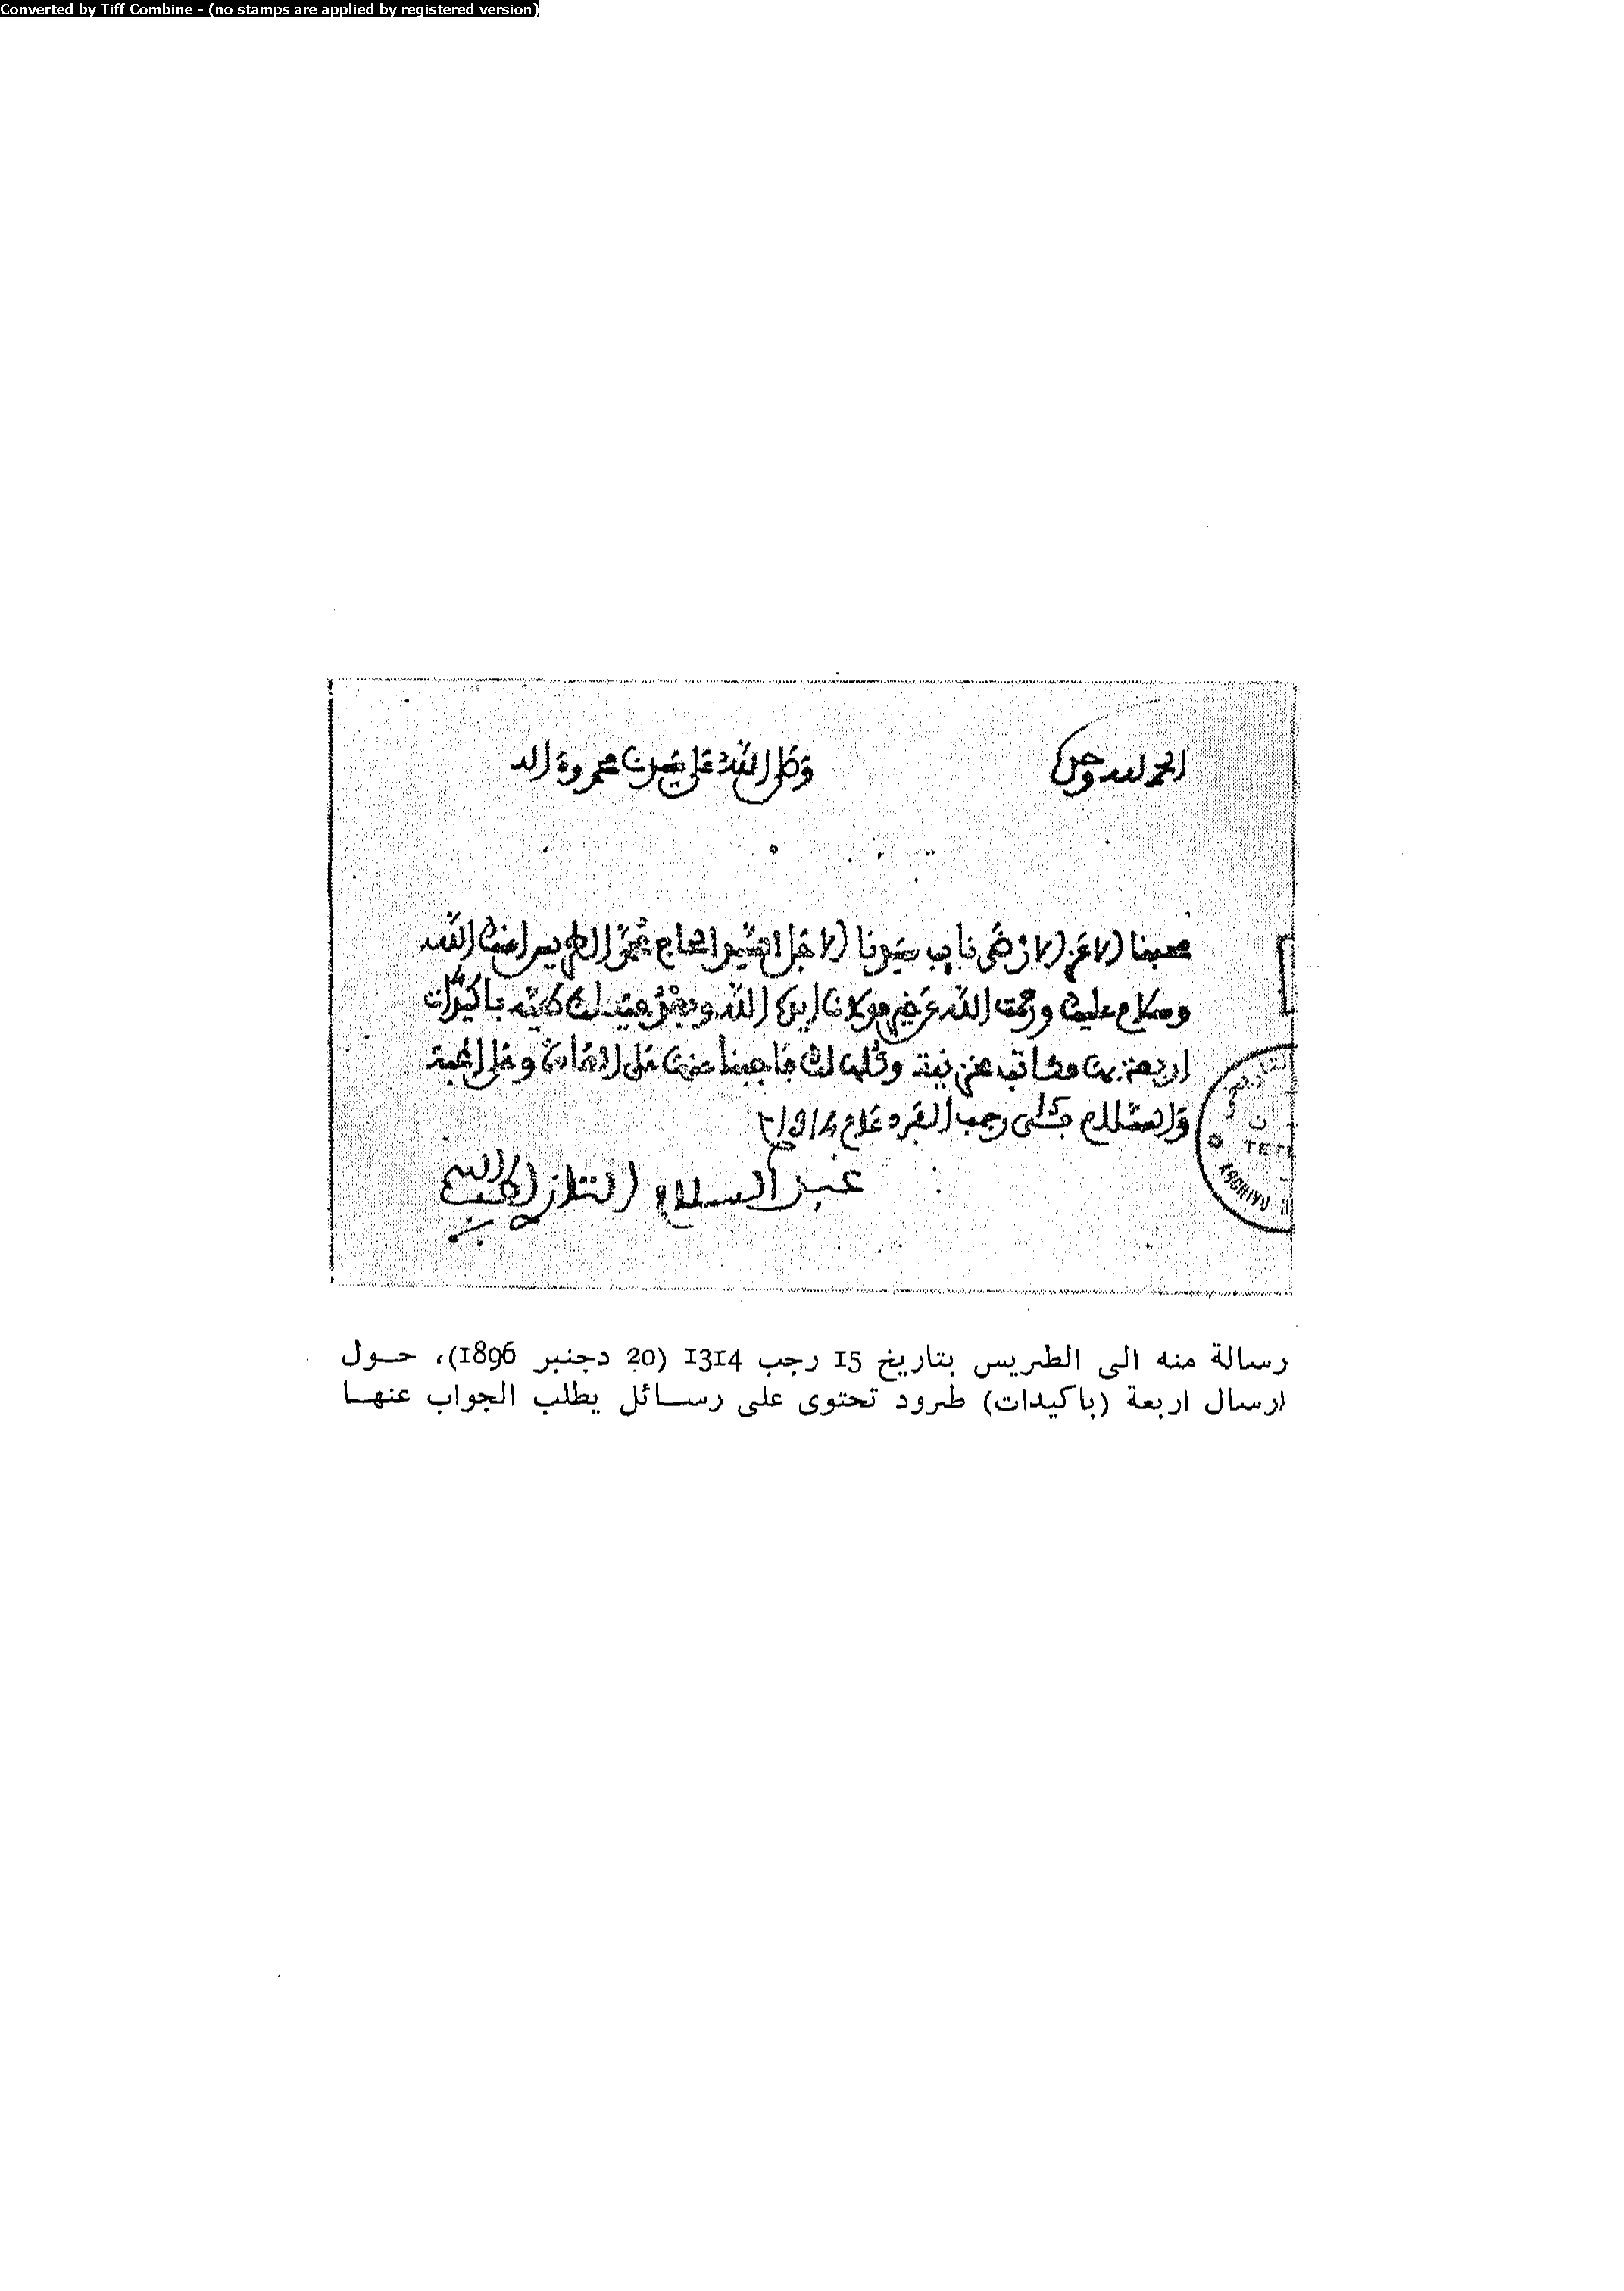 Converted by Tiff Combine - (no stamps are applied by registered version)
الحمد لله وحده
وصل الله على سيدنا محمد وءاله
محبنا الاعز الارضى نايب سيدنا الاجل الحاج محمد الطريس امنك الله
وسلام عليك ورحمت الله عن خير مولانا ايده الله وبعد باكيدات
اربعة فيهن وصل لك فاجبنا عنهن على المحبة
والسلام في رجب الفرد عام 1314
عبد السلام التازي
TET
ARCHIVO
رسالة منه الى الطريس بتاريخ 15 رجب 1314 (20 دجنبر 1896)، حــول
ارسال اربعة (باكيدات) طرود تحتوى على رســائل يطلب الجواب عنهــا